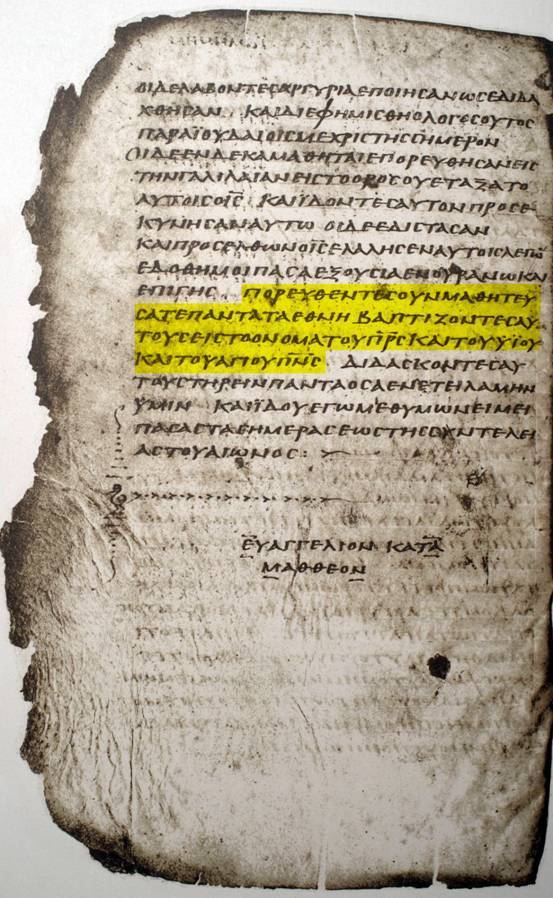 ΟΙΔΕΛΑΒΟΝΤΕϹΑΡΓΥΡΙΑΕΠΟΙΗϹΑΝΩϹΕΔΙΔΑ
ΧΘΗϹΑΝ ΚΑΙΔΙΕΦΗΜΙϹΘΗΟΛΟΓΟϹΟΥΤΟϹ
ΠΑΡΑΪΟΥΔΑΙΟΙϹΜΕΧΡΙΤΗϹϹΗΜΕΡΟΝ
ΟΙΔΕΕΝΔΕΚΑΜΑΘΗΤΑΙΕΠΟΡΕΥΘΗϹΑΝΕΙϹ
ΤΗΝΓΑΛΙΛΑΙΑΝΕΙϹΤΟΟΡΟϹΟΥΕΤΑΞΑΤΟ
ΑΥΤΟΙϹΟΙ̅Ϲ̅ ΚΑΙΪΔΟΝΤΕϹΑΥΤΟΝΠΡΟϹΕ
ΚΥΝΗϹΑΝΑΥΤΩ ΟΙΔΕΕΔΙϹΤΑϹΑΝ
ΚΑΙΠΡΟϹΕΛΘΩΝΟΙ̅Ϲ̅ΕΛΑΛΗϹΕΝΑΥΤΟΙϹΛΕΓΩ̅
ΕΔΟΘΗΜΟΙΠΑϹΑΕΞΟΥϹΙΑΕΝΟΥΡΑΝΩΚΑΙ
ΕΠΙΓΗϹ ΠΟΡΕΥΘΕΝΤΕϹΟΥΝΜΑΘΗΤΕΥ
ϹΑΤΕΠΑΝΤΑΤΑΕΘΝΗ ΒΑΠΤΙΖΟΝΤΕϹΑΥ
ΤΟΥϹΕΙϹΤΟΟΝΟΜΑΤΟΥΠ̅Ρ̅Ϲ̅ΚΑΙΤΟΥΫΪΟΥ
ΚΑΙΤΟΥΑΓΙΟΥΠ̅Ν̅Ϲ̅ ΔΙΔΑϹΚΟΝΤΕϹΑΥ
ΤΟΥϹΤΗΡΕΙΝΠΑΝΤΑΟϹΑΕΝΕΤΕΙΛΑΜΗΝ
ΫΜΙΝ ΚΑΙΪΔΟΥΕΓΩΜΕΘΥΜΩΝΕΙΜΕΙ
ΠΑϹΑϹΤΑϹΗΜΕΡΑϹΕΩϹΤΗϹϹΥΝΤΕΛΕΙ
ΑϹΤΟΥΑΙΩΝΟϹ:
ΕΥΑΓΓΕΛΙΟΝ ΚΑΤΑ
ΜΑΘΘΕΟΝ